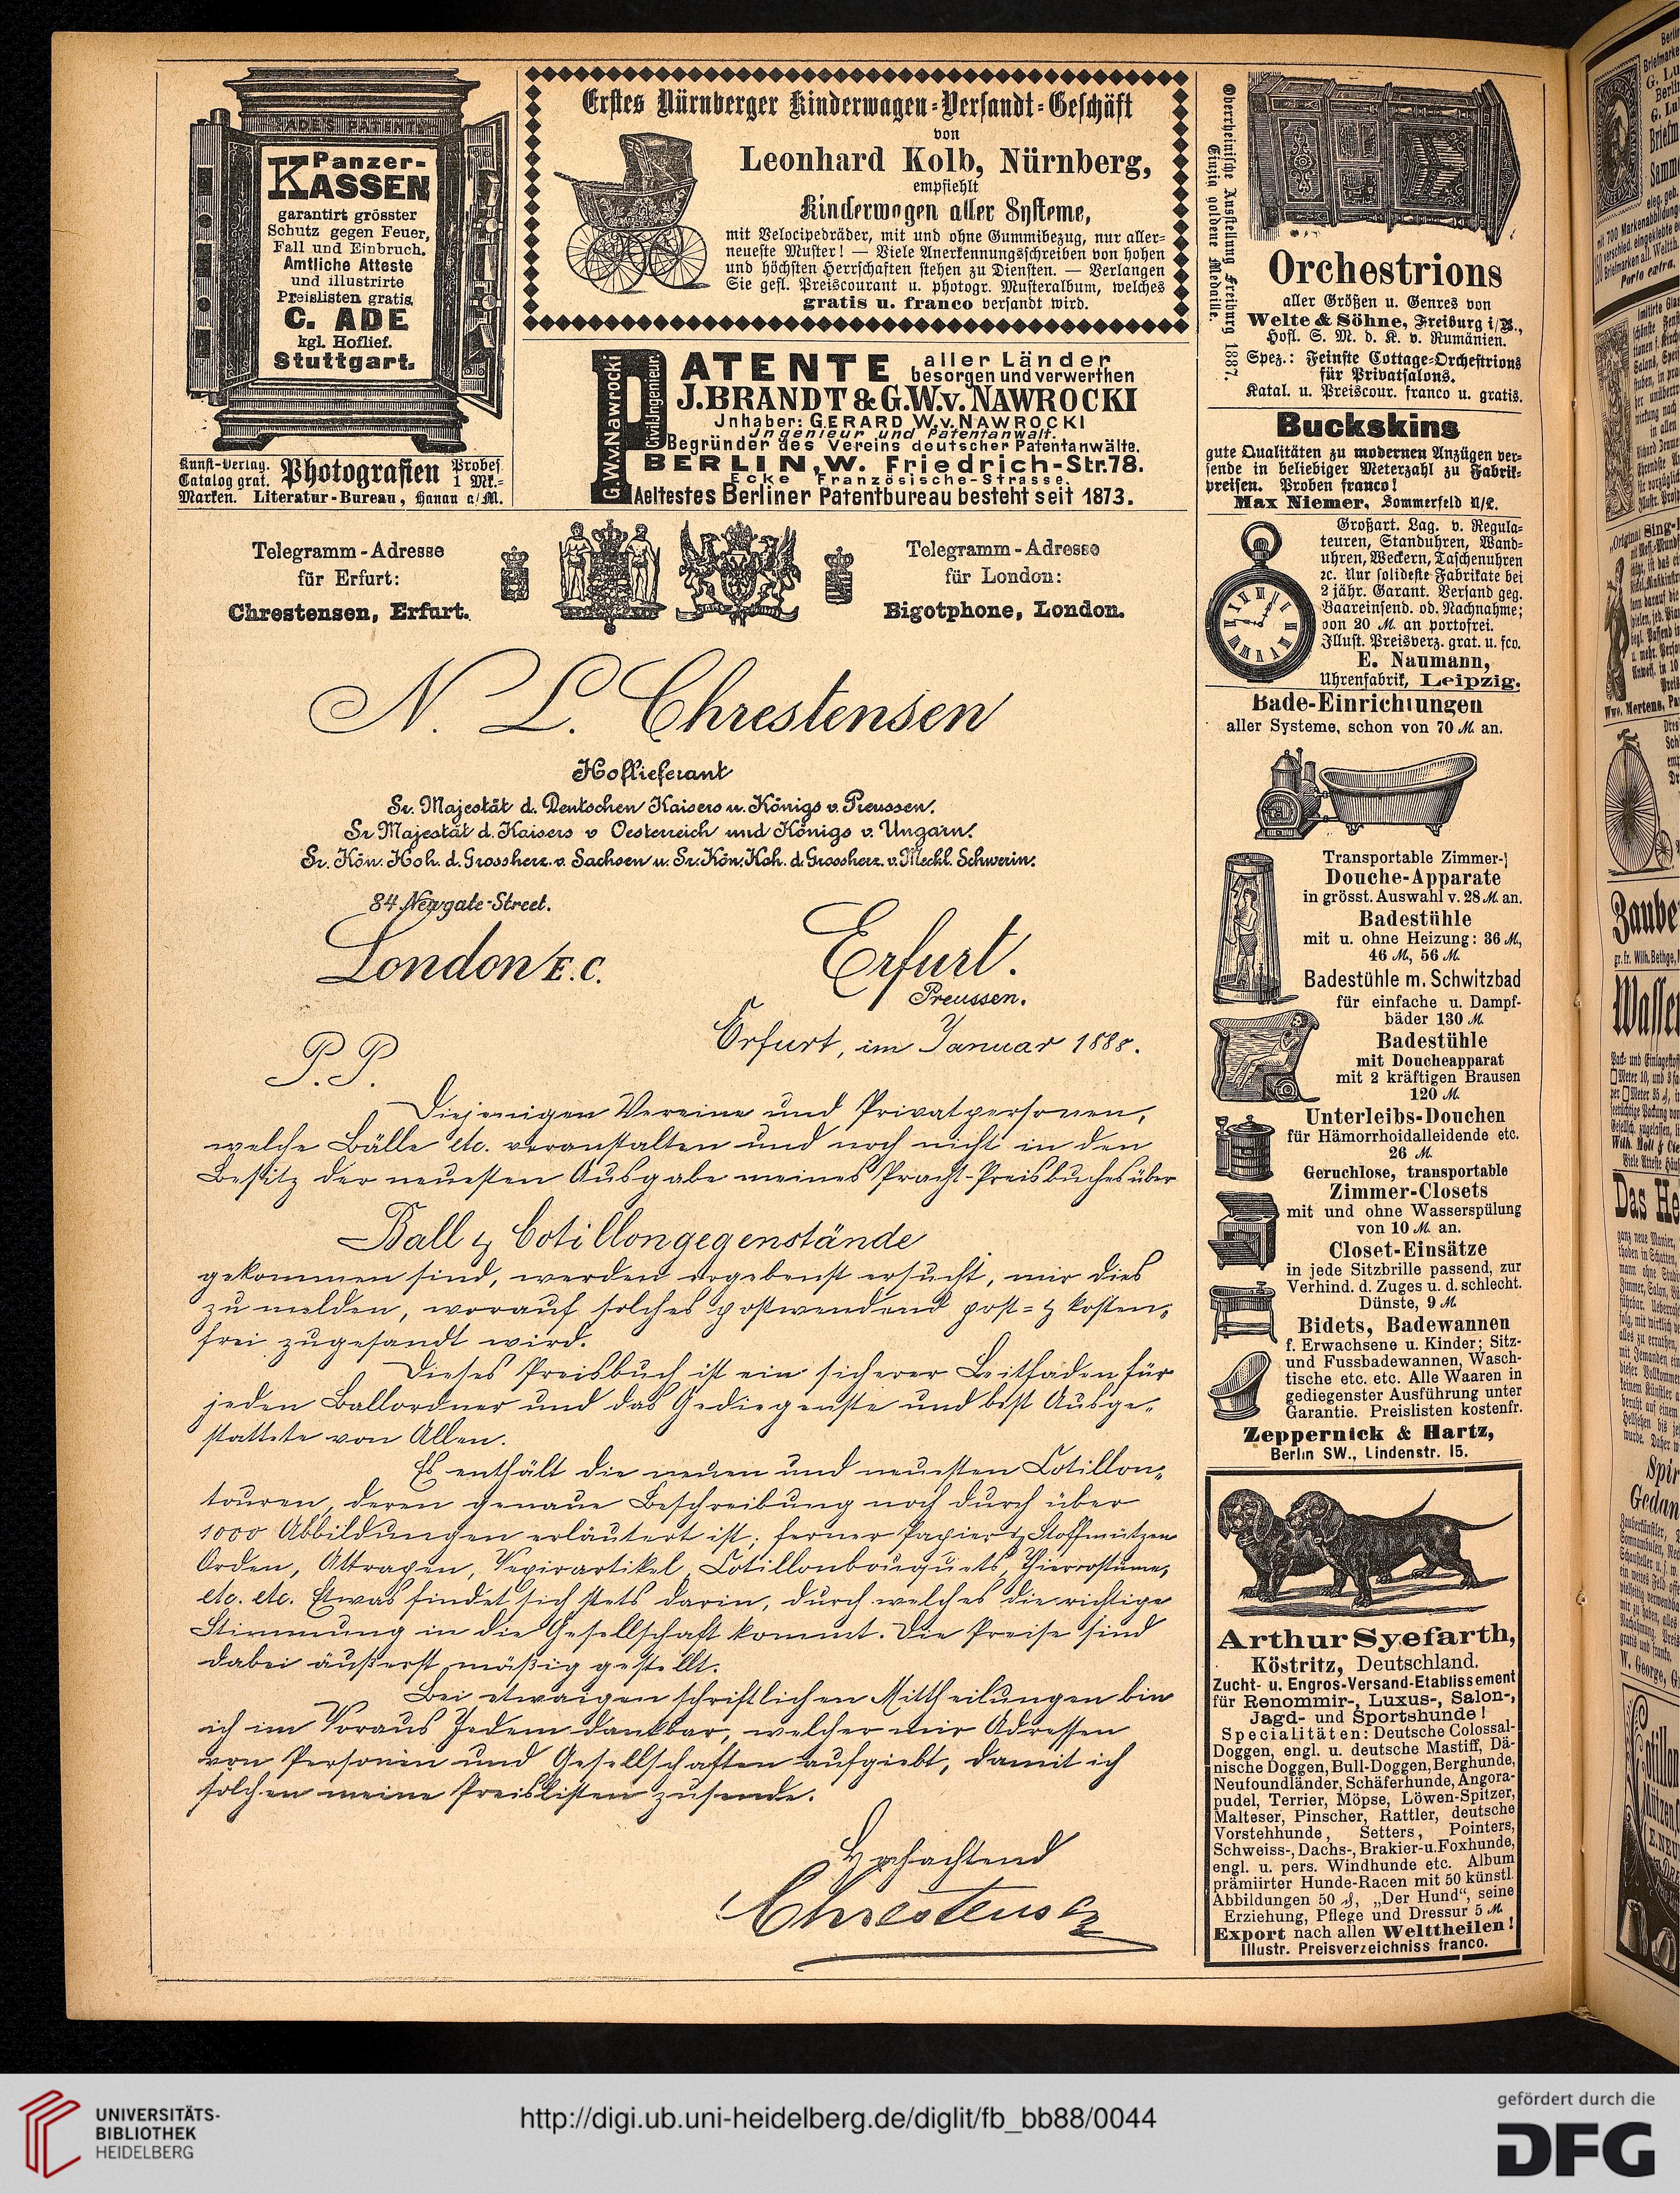 ADE'S PATENT
Panzer-
KASSEN
garantirt grösster
Schutz gegen Feuer,
Fall und Einbruch.
Amtliche Atteste
und illustrirte
Preislisten gratis.
C. ADE
kgl. Hoflief.
Stuttgart.
Kunst-Verlag.
Catalog grat.
Photografien
Probes.
1 Mk.=
Marken. Literatur-Bureau, Hanau a/M.
Erstes Nürnberger Kinderwagen-Versandt-Geschäft
von
Leonhard Kolb, Nürnberg,
empfiehlt
Kinderwagen aller Systeme,
mit Velocipedräder, mit und ohne Gummibezug, nur aller-
neueste Muster! — Viele Anerkennungsschreiben von hohen
und höchsten Herrschaften stehen zu Diensten. — Verlangen
Sie gefl. Preiscourant u. photogr. Musteralbum, welches
gratis u. franco versandt wird.
PATENTE aller Länder
besorgen und verwerthen
J. BRANDT & G.W.v. NAWROCKI
Jnhaber: GERARD W.v. NAWROCKI
Jngenieur und Patentanwalt.
Begründer des Vereins deutscher Patentanwälte.
BERLIN, W. Friedrich-Str. 78.
Ecke Französische-Strasse.
Aeltestes Berliner Patentbureau besteht seit 1873.
G.W.v. Nawrocki
Civil-Jngenieur.
Telegramm-Adresse
für Erfurt:
Chrestensen, Erfurt.
Telegramm-Adresse
für London:
Bigotphone, London.
N. L. Chrestensen
Hoflieferant
Sr. Majestät d. Deutschen Kaisers u. Königs v. Preussen.
Sr Majestät d. Kaisers v Oesterreich und Königs v. Ungarn.
Sr. Kön. Hoh. d. Grossherz. v. Sachsen u. Sr. Kön. Hoh. d. Grossherz. v. Meckl. Schwerin.
84 Newgate-Street.
London E.C.
Erfurt.
Preussen.
Erfurt, im Januar 1888.
P. P.
Diejenigen Vereine und Privatpersonen,
welche Bälle etc. veranstalten und noch nicht in den
Besitz der neuesten Ausgabe meines Pracht-Preisbuches über
Ball & Cotillongegenstände
gekommen sind, werden ergebenst ersucht, mir dies
zu melden, worauf solches postwendend post= & kosten-
frei zugesandt wird.
Dieses Preisbuch ist ein sicherer Leitfaden für
jeden Ballordner und das Gediegenste und best Ausge-
stattete von Allen.
Es enthält die neuen und neuesten Cotillon-
touren, deren genaue Beschreibung noch durch über
1000 Abbildungen erläutert ist; ferner Papier & Stoffmützen
Orden, Attrapen, Vexirartikel, Cotillonbouquets, Thiercostüme,
etc. etc. Etwas findet sich stets darin, durch welches die richtige
Stimmung in die Gesellschaft kommt. Die Preise sind
dabei äußerst mäßig gestellt.
Bei etwaigen schriftlichen Mittheilungen bin
ich im Voraus Jedem dankbar, welcher mir Adressen
von Personen und Gesellschaften aufgiebt, damit ich
solchen meine Preislisten zusende.
Hochachtend
Chrestensen
Oberrheinische Ausstellung Freiburg 1887.
Einzig goldene Medaille.
Orchestrions
aller Größen u. Genres von
Welte & Söhne, Freiburg i/B.,
Hofl. S. M. d. K. v. Rumänien.
Spez.: Feinste Cottage-Orchestrions
für Privatsalons.
Katal. u. Preiscour. franco u. gratis.
Buckskins
gute Qualitäten zu modernen Anzügen ver-
sende in beliebiger Meterzahl zu Fabrik-
preisen. Proben franco!
Max Niemer, Sommerfeld N/L.
Großart. Lag. v. Regula-
teuren, Standuhren, Wand-
uhren, Weckern, Taschenuhren
ec. Nur solideste Fabrikate bei
2 jähr. Garant. Versand geg.
Baareinsend. od. Nachnahme;
von 20 M. an portofrei.
Illust. Preisverz. grat. u. fco.
E. Naumann,
Uhrenfabrik, Leipzig.
Bade-Einrichtungen
aller Systeme, schon von 70 M. an.
Transportable Zimmer-
Douche-Apparate
in grösst. Auswahl v. 28 M. an.
Badestühle
mit u. ohne Heizung: 36 M,
46 M, 56 M.
Badestühle m. Schwitzbad
für einfache u. Dampf-
bäder 130 M.
Badestühle
mit Doucheapparat
mit 2 kräftigen Brausen
120 M.
Unterleibs-Douchen
für Hämorrhoidalleidende etc.
26 M.
Geruchlose, transportable
Zimmer-Closets
mit und ohne Wasserspülung
von 10 M. an.
Closet-Einsätze
in jede Sitzbrille passend, zur
Verhind. d. Zuges u. d. schlecht.
Dünste, 9 M.
Bidets, Badewannen
f. Erwachsene u. Kinder; Sitz-
und Fussbadewannen, Wasch-
tische etc. etc. Alle Waaren in
gediegenster Ausführung unter
Garantie. Preislisten kostenfr.
Zeppernick & Hartz,
Berlin SW., Lindenstr. 15.
Arthur Syefarth,
Köstritz, Deutschland.
Zucht- u. Engros-Versand-Etablissement
für Renommir-, Luxus-, Salon-,
Jagd- und Sportshunde!
Specialitäten: Deutsche Colossal-
Doggen, engl. u. deutsche Mastiff, Dä-
nische Doggen, Bull-Doggen, Berghunde,
Neufoundländer, Schäferhunde, Angora-
pudel, Terrier, Möpse, Löwen-Spitzer,
Malteser, Pinscher, Rattler, deutsche
Vorstehhunde, Setters, Pointers,
Schweiss-, Dachs-, Brakier- u. Foxhunde,
engl. u. pers. Windhunde etc. Album
prämiirter Hunde-Racen mit 50 künstl.
Abbildungen 50 ₰, „Der Hund“, seine
Erziehung, Pflege und Dressur 5 M.
Export nach allen Welttheilen!
Illustr. Preisverzeichniss franco.
UNIVERSITÄTS-
BIBLIOTHEK
HEIDELBERG
http://digi.ub.uni-heidelberg.de/diglit/fb_bb88/0044
gefördert durch die
DFG